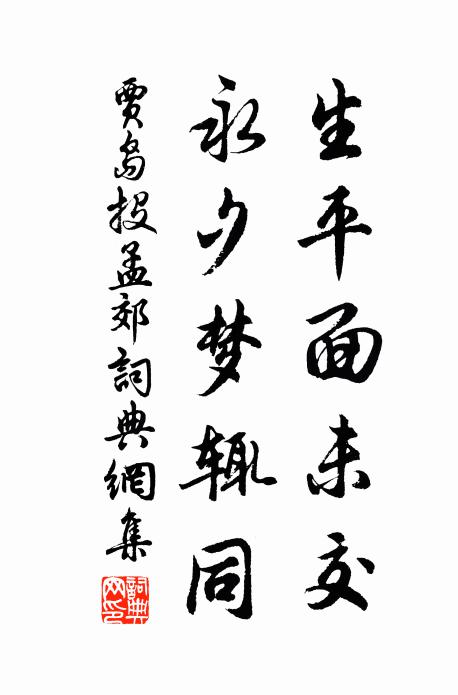 生平面未交
永夕梦辄同
賈島投孟郊詞典網集
詞典網印